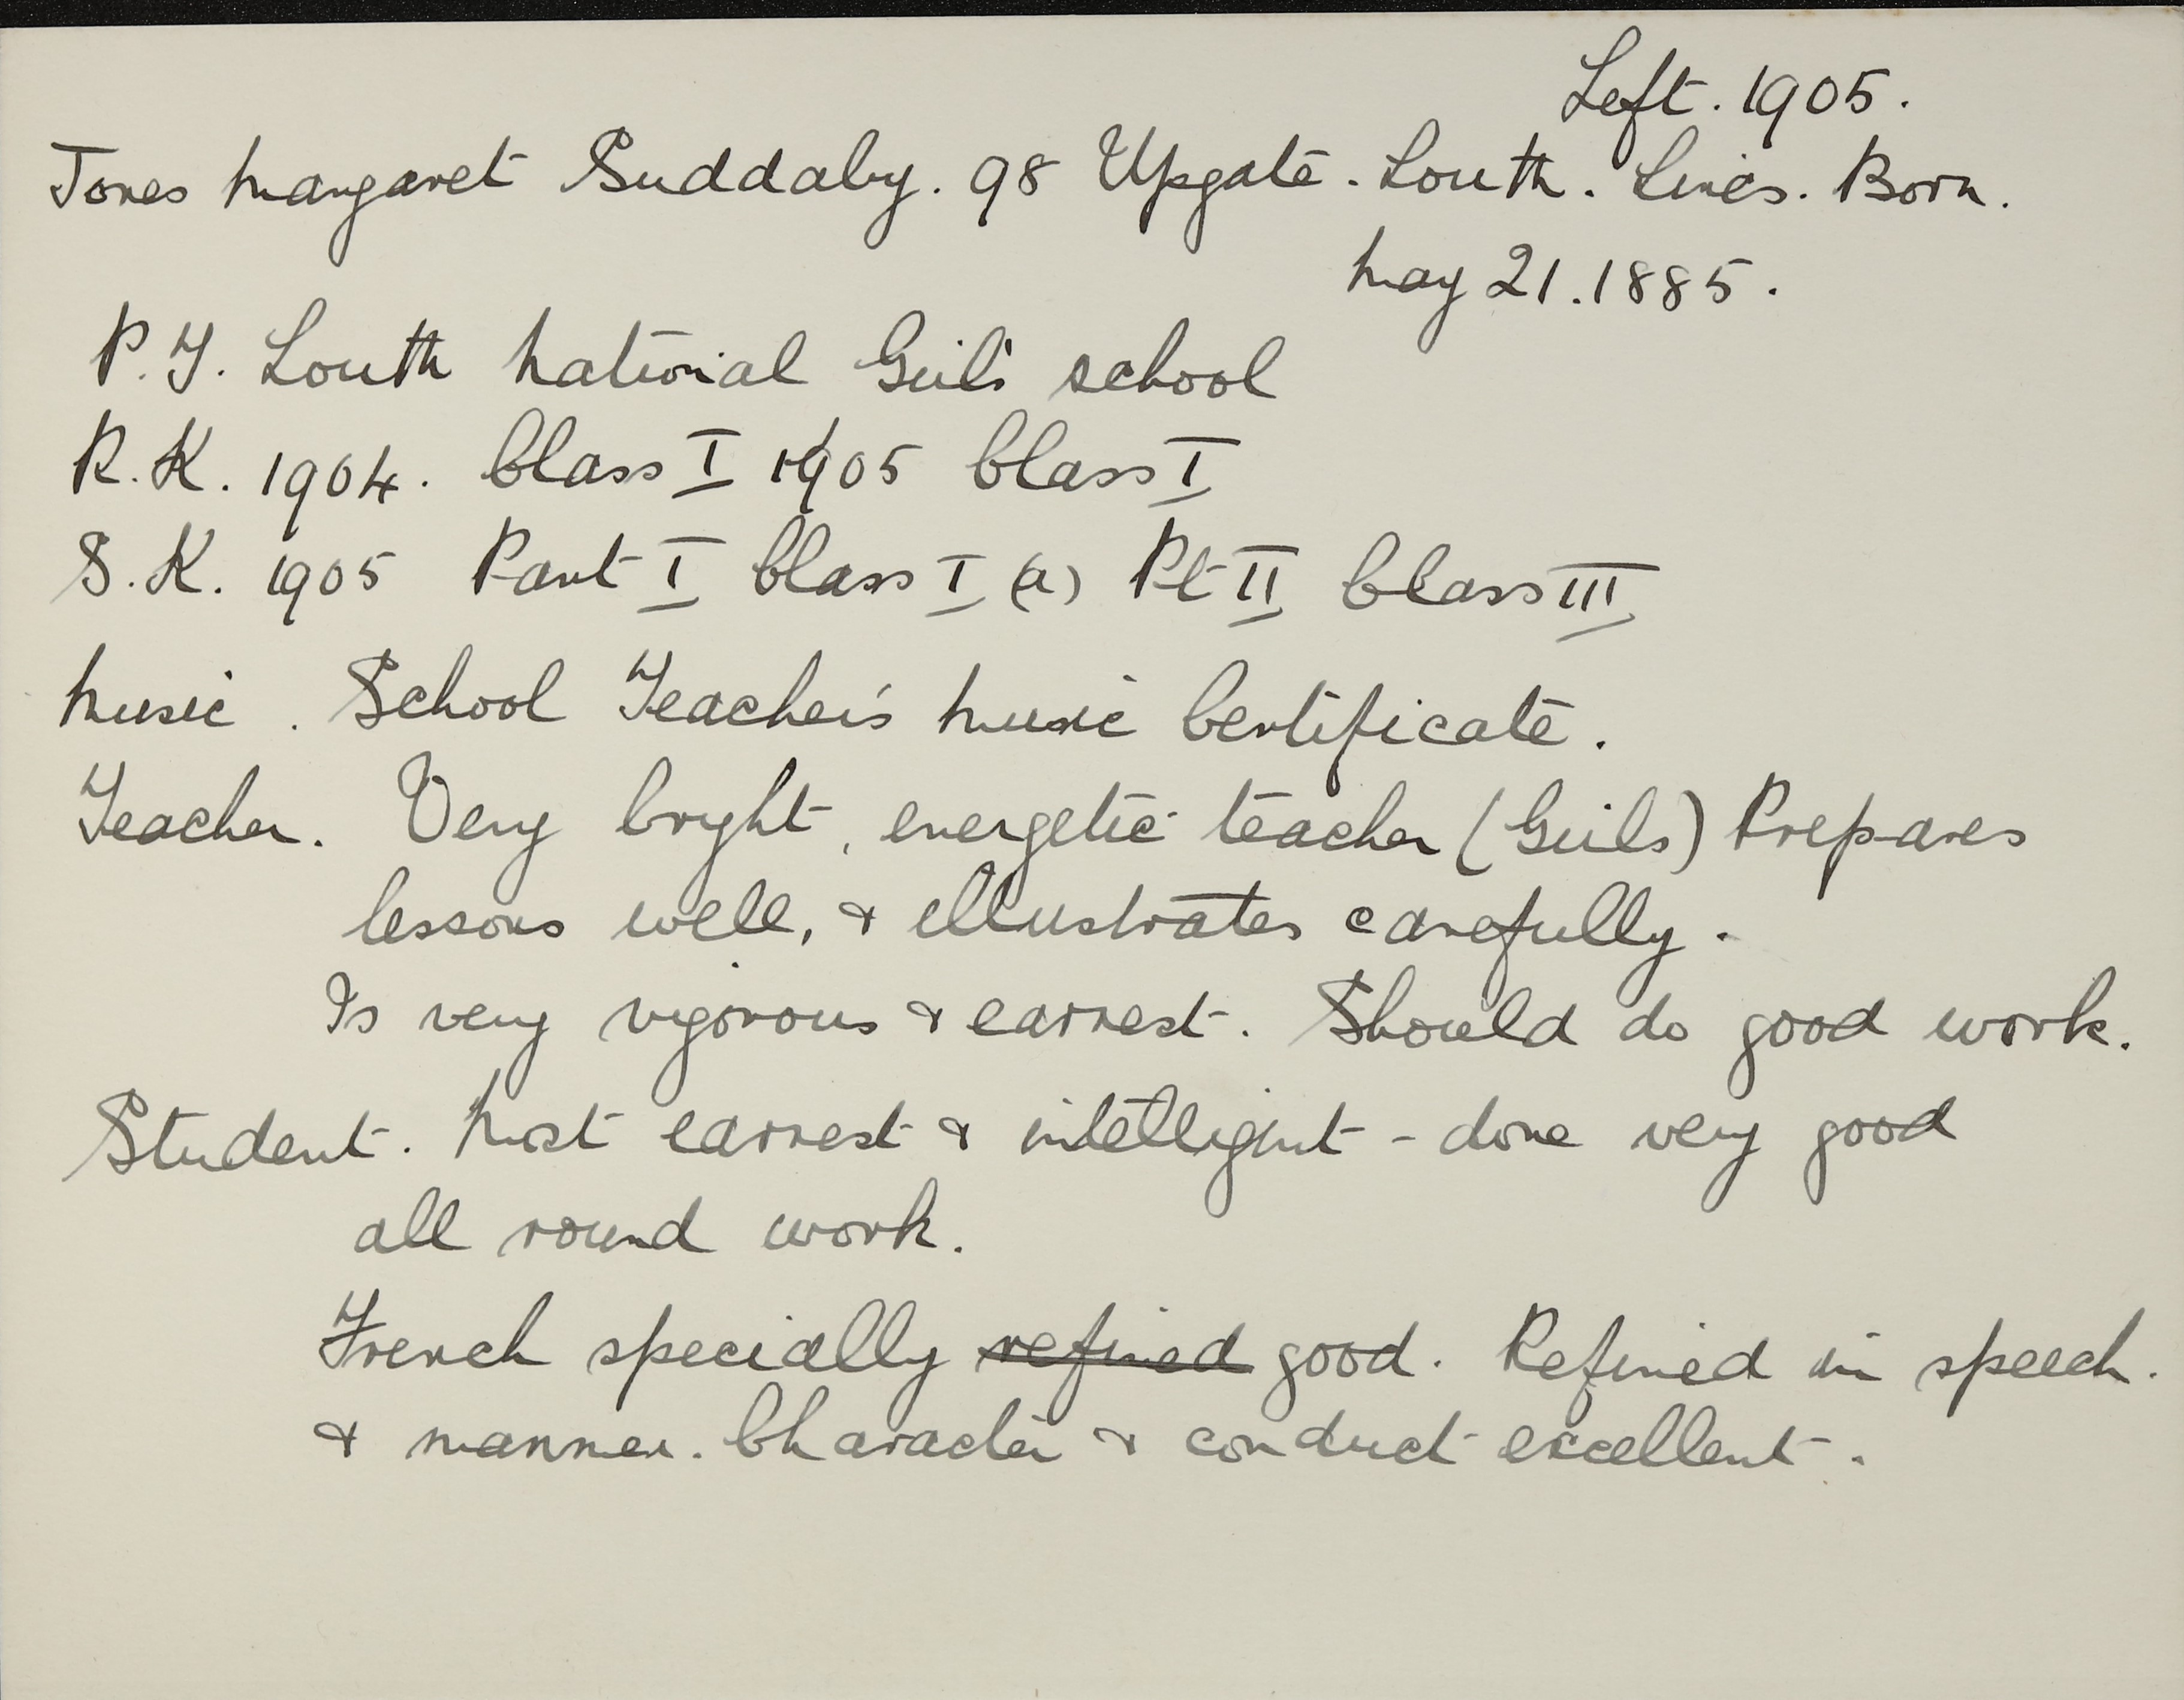 Left. 1905.
Jones Margaret Suddaby. 98 Upgate. Louth. Lincs. Born.
May 21. 1885.
P.T. Louth National Girls' school
R.K. 1904. Class I 1905 Class I
S.K. 1905 Part I Class I (a) Pt II Class III
Music. School Teacher's Music Certificate.
Teacher. Very bright, energetic teacher (Girls) Prepares
lessons well, & illustrates carefully.
Is very vigorous & earnest. Should do good work.
Student. Most earnest & intelligent - done very good
all round work.
French specially refined good. Refined in speech.
& manner. Character & conduct excellent.